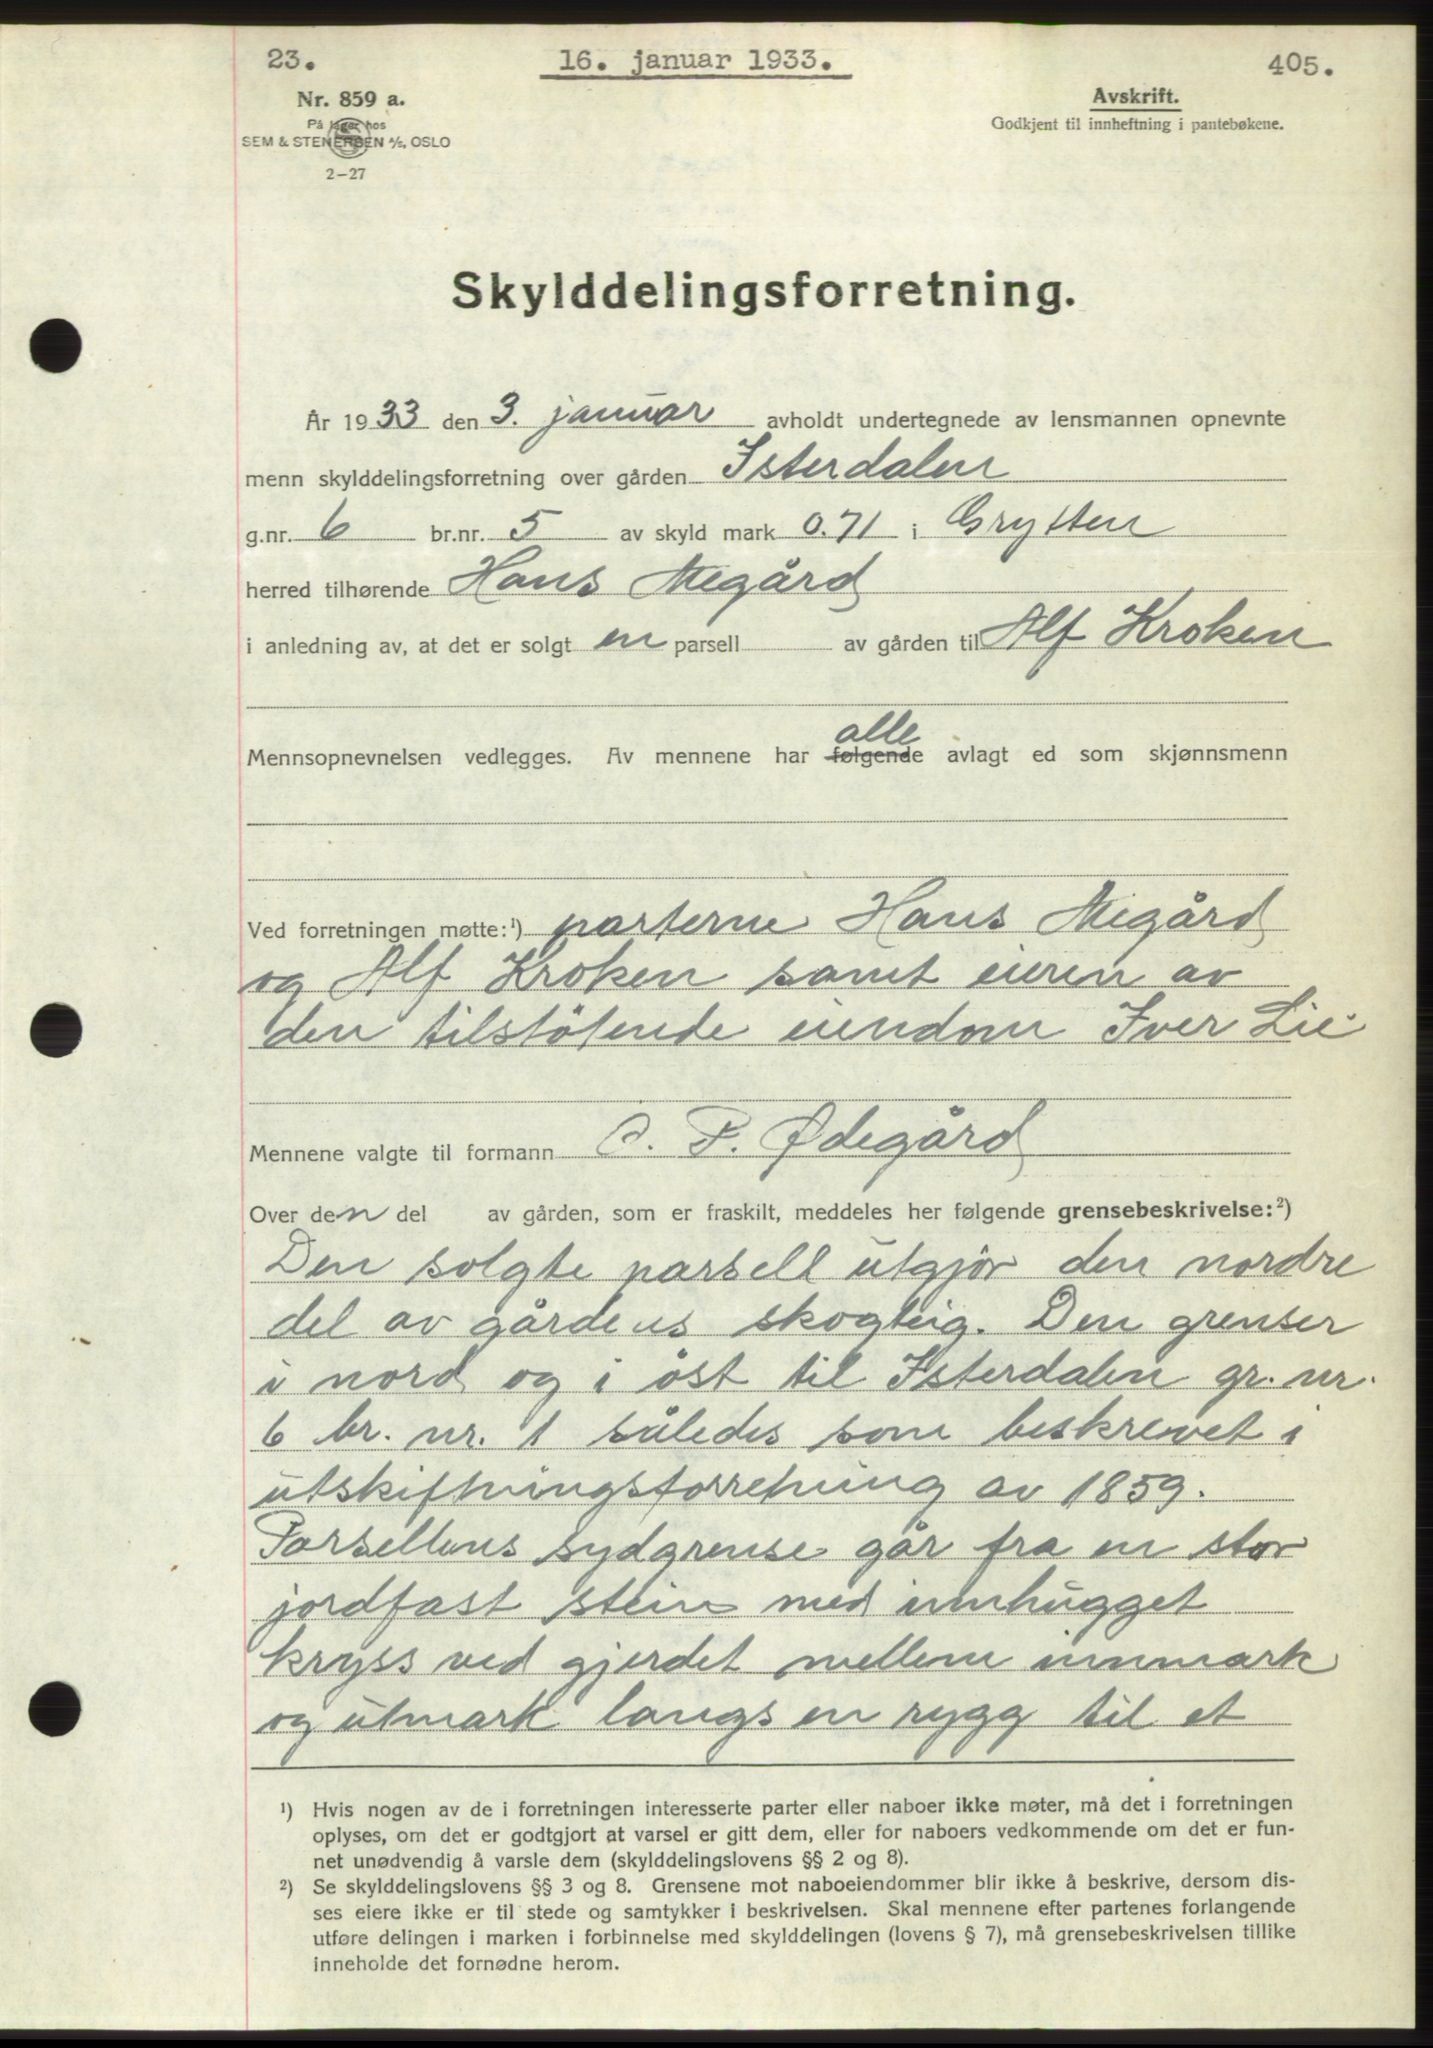 23.
16. januar 1933.
405.
Nr. 859 a.
På lager hos
SEM & STENERSEN A/S, OSLO
2-27
Avskrift.
Godkjent til innheftning i pantebøkene.
Skylddelingsforretning.
År 1933 den 3. januar avholdt undertegnede av lensmannen opnevnte
menn skylddelingsforretning over gården Isterdalen
g.nr. 6 br.nr. 5 av skyld mark 0.71 i Grytten
herred tilhørende Hans Megård
i anledning av, at det er solgt en parsell av gården til Alf Kroken
alle
Mennsopnevnelsen vedlegges. Av mennene har følgende avlagt ed som skjønnsmenn
Ved forretningen møtte:¹) parterne Hans Megård
og Alf Kroken samt eieren av
den tilstötende eiendom Iver Lie.
Mennene valgte til formann O. P. Ødegård
Over den del av gården, som er fraskilt, meddeles her følgende grensebeskrivelse:²)
Den solgte parsell utgjör den nordre
del av gårdens skogteig. Den grenser
i nord og i öst til Isterdalen gr. nr.
6 br. nr. 1 således som beskrevet i
utskiftningsforretning av 1859.
Parsellens sydgrense går fra en stor
jordfast stein med innhugget
kryss ved gjerdet mellem innmark
og utmark langs en rygg til et
¹) Hvis nogen av de i forretningen interesserte parter eller naboer ikke møter, må det i forretningen
oplyses, om det er godtgjort at varsel er gitt dem, eller for naboers vedkommende om det er fun-
net unødvendig å varsle dem (skylddelingslovens §§ 2 og 8).
²) Se skylddelingslovens §§ 3 og 8. Grensene mot naboeiendommer blir ikke å beskrive, dersom dis-
ses eiere ikke er til stede og samtykker i beskrivelsen. Skal mennene efter partenes forlangende
utføre delingen i marken i forbinnelse med skylddelingen (lovens § 7), må grensebeskrivelsen tillike
inneholde det fornødne herom.